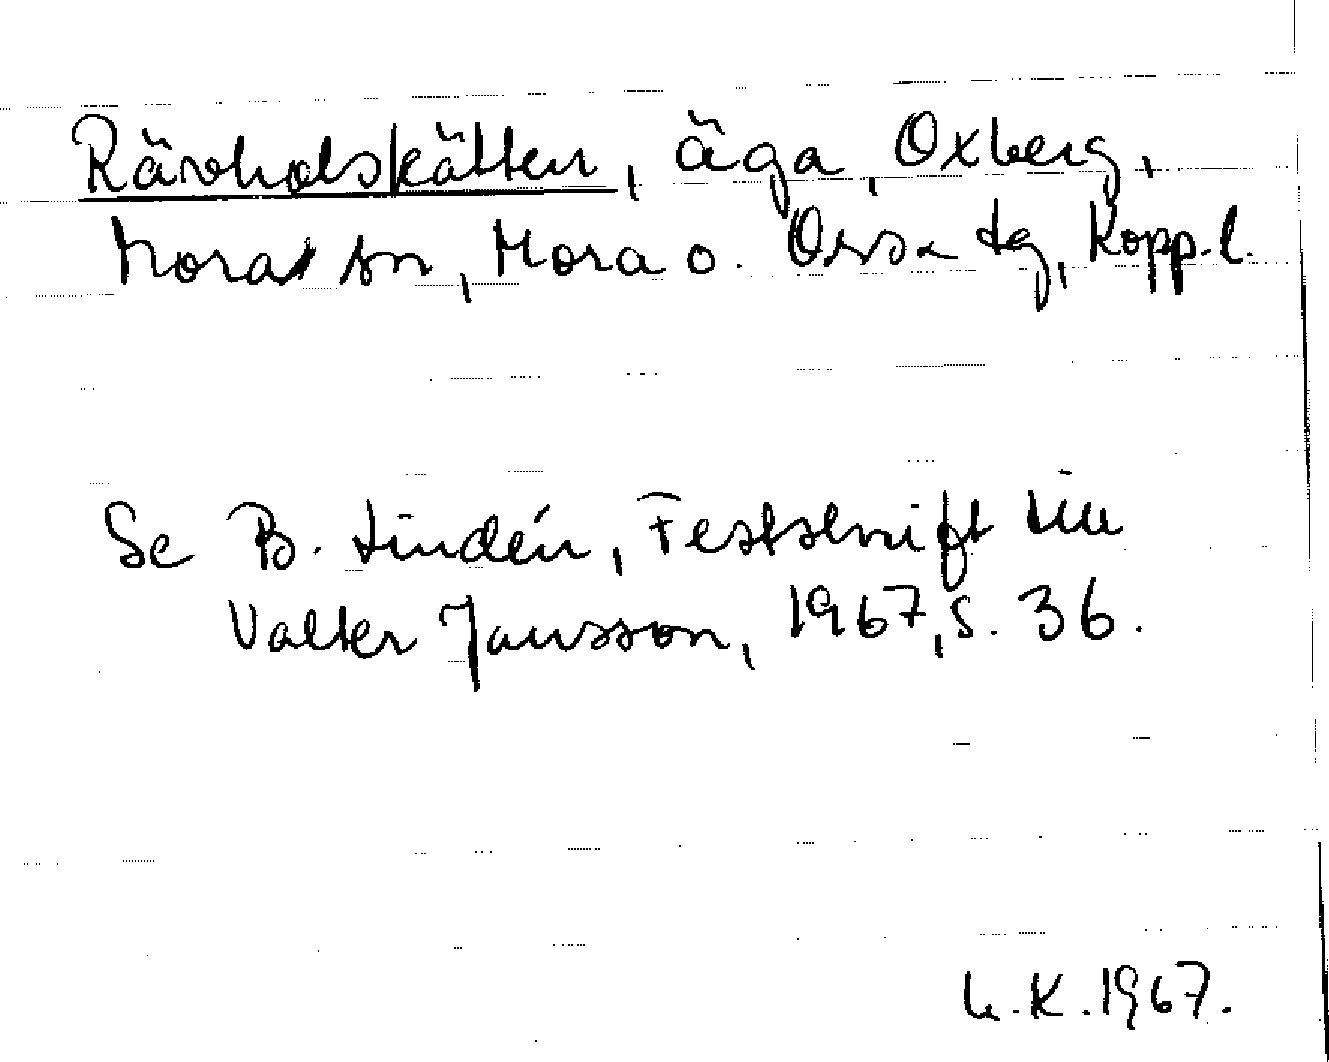 Rävholskätten, äga, Oxberg,
Mora sn, Mora o. Orsa tg, Kopp. l.
Se B. Lindén, Festskrift till
Valter Jansson, 1967, s. 36.
L. K. 1967.